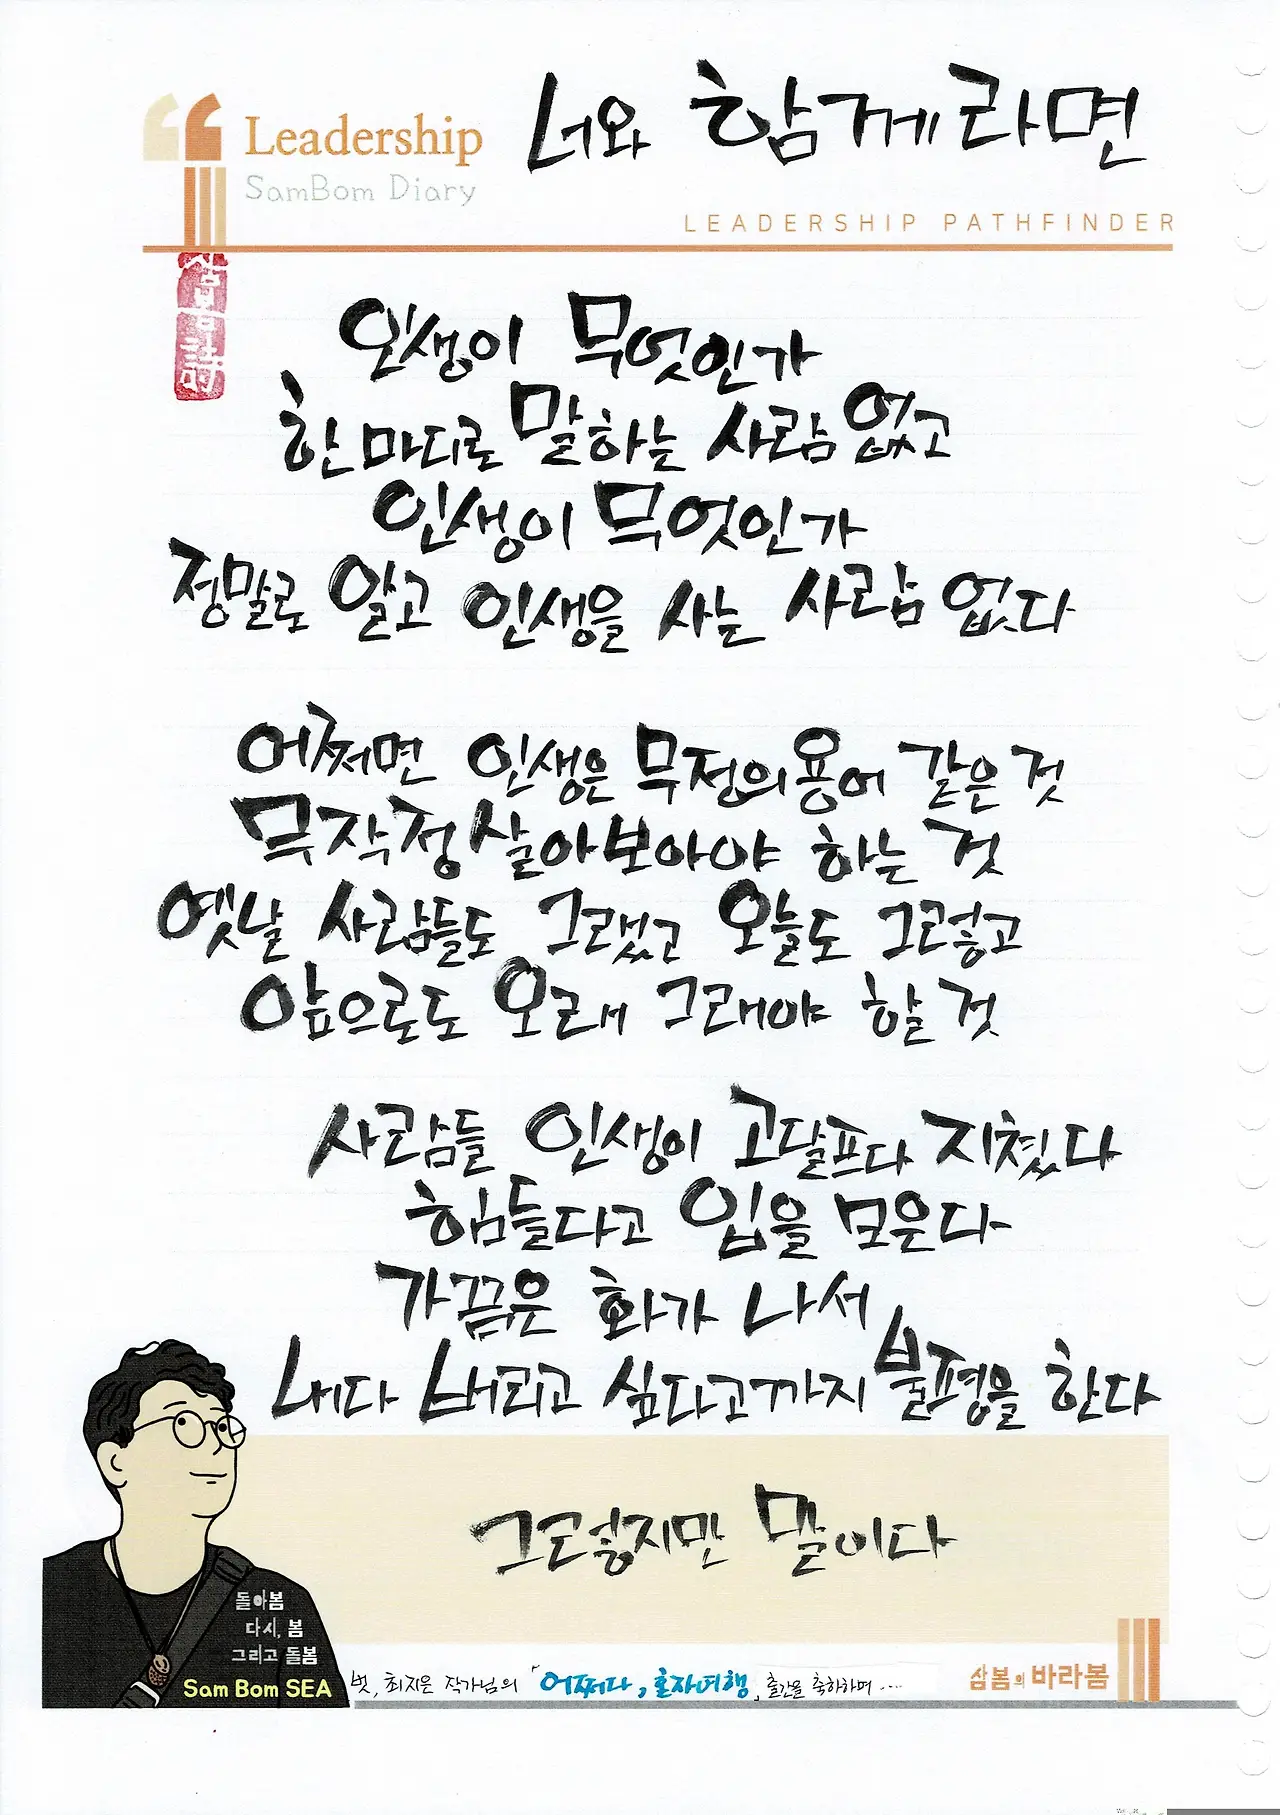 너와 함께라면
Leadership
SamBom Diary
LEADERSHIP PATHFINDER
삼봄詩
인생이 무엇인가
한 마디로 말하는 사람 없고
인생이 무엇인가
정말로 알고 인생을 사는 사람 없다
어쩌면 인생은 무정의용어 같은 것
무작정 살아보아야 하는 것
옛날 사람들도 그랬고 오늘도 그렇고
앞으로도 오래 그래야 할 것
사람들 인생이 고달프다 지쳤다
힘들다고 입을 모은다
가끔은 화가 나서
내다 버리고 싶다고까지 불평을 한다
그렇지만 말이다
돌아봄
다시, 봄
그리고 돌봄
Sam Bom SEA
벗, 최지은 작가님의 「어쩌다, 혼자여행」 출간을 축하하며....
삼봄의 바라봄